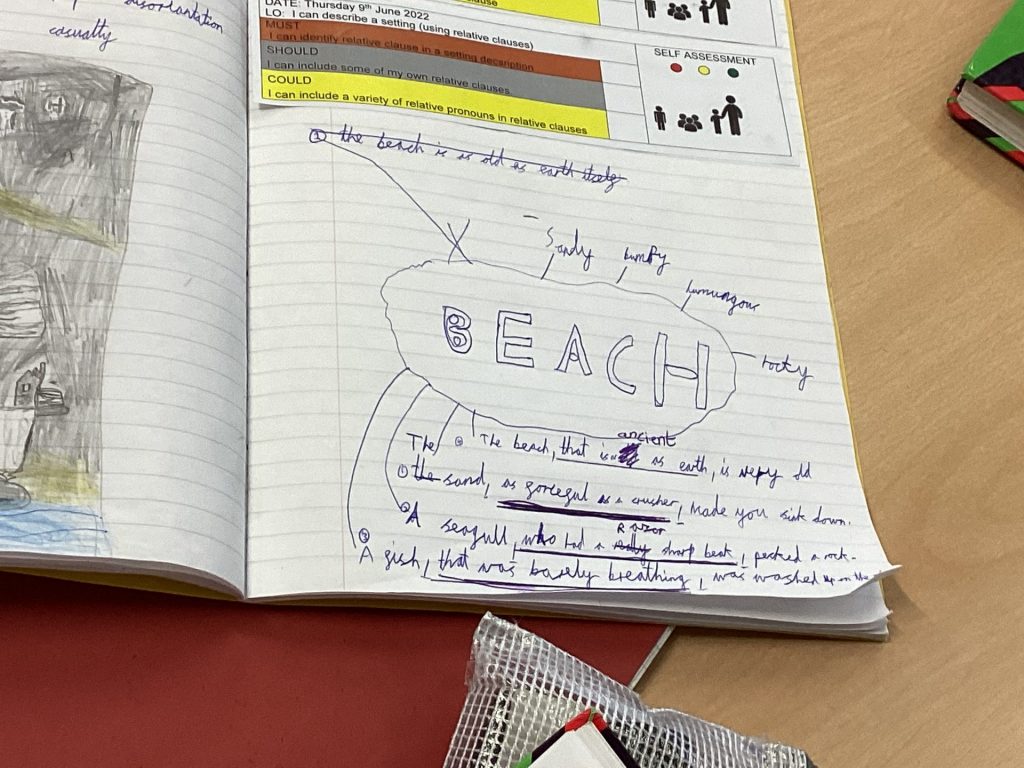 disorlantation
casualty
clause
DATE: Thursday 9th June 2022
LO: I can describe a setting (using relative clauses)
MUST
I can identify relative clause in a setting decsription
SHOULD
I can include some of my own relative clauses
COULD
I can include a variety of relative pronouns in relative clauses
SELF ASSESSMENT
① the beach is as old as earth itself
Sandy
bumpy
humungous
rocky
BEACH
ancient
The The beach, that is as earth, is very old
① the sand, as forceful as a crusher, made you sink down.
Razor
A seagull, who had a sharp beak, pecked a rock.
A fish, that was barely breathing, was washed up on the